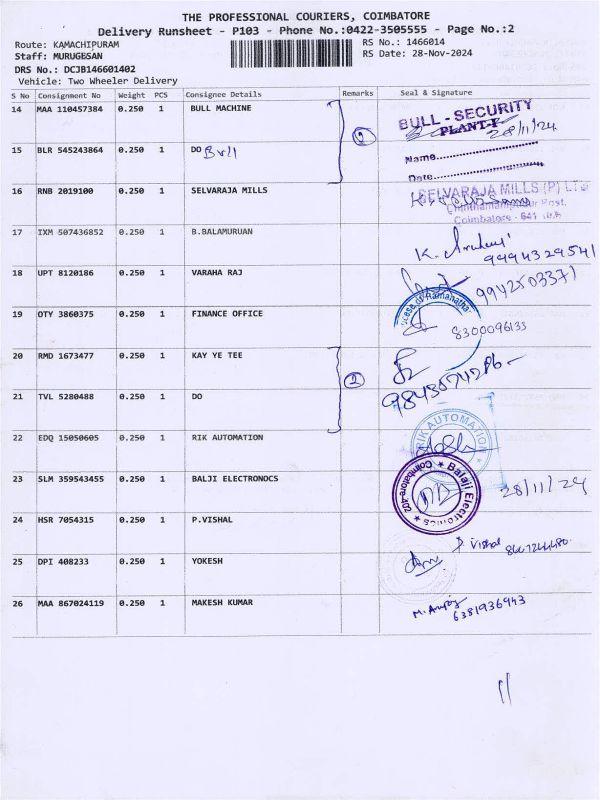 THE PROFESSIONAL COURIERS, COIMBATORE
Delivery Runsheet - P103 - Phone No.:0422-3505555 - Page No.:2
Route: KAMACHIPURAM RS No.: 1466014
Staff: MURUGESAN RS Date: 28-Nov-2024
DRS No.: DCJB146601402
Vehicle: Two Wheeler Delivery
S No Consignment No Weight PCS Consignee Details Remarks Seal & Signature
14 MAA 110457384 0.250 1 BULL MACHINE
BULL - SECURITY
PLANT-I
28/11/24
15 BLR 545243864 0.250 1 DO Bull
2
Name
Date
16 RNB 2019100 0.250 1 SELVARAJA MILLS
SELVARAJA MILLS (P) LTD
Post,
Coimbatore - 641
17 IXM 507436852 0.250 1 B.BALAMURUAN
K.
9994329541
18 UPT 8120186 0.250 1 VARAHA RAJ
9942503371
19 OTY 3860375 0.250 1 FINANCE OFFICE
of Ramanatha
8300096133
20 RMD 1673477 0.250 1 KAY YE TEE
2
21 TVL 5280488 0.250 1 DO
22 EDQ 15050605 0.250 1 RIK AUTOMATION
RIK AUTOMATION
23 SLM 359543455 0.250 1 BALJI ELECTRONOCS
Balaji Electronics
28/11/24
24 HSR 7054315 0.250 1 P.VISHAL
P. Vishal
25 DPI 408233 0.250 1 YOKESH
26 MAA 867024119 0.250 1 MAKESH KUMAR
6381936943